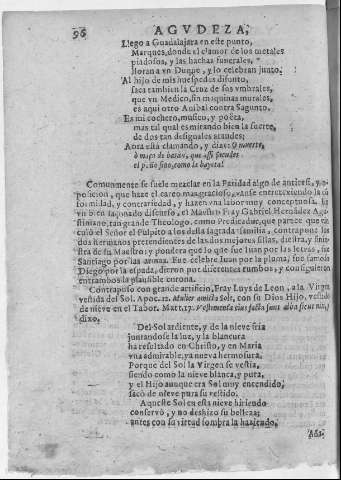 96 AGVDEZA,
Llego a Guadalajara en este punto,
Marques, donde el clamor de los metales
piadosos, y las hachas funerales,
lloran a vn Duque, y lo celebran junto.
Al hijo de mi huesped es difunto,
saca tambien la Cruz de sos vmbrales,
que vn Medico, sin maquinas murales,
es aqui otro Anibal contra Sagunto.
Es mi cochero, musico, y poëta,
mas tal qual es mirando bien la suerte,
de dos tan desiguales ataudes;
Aora està clamando, y dize: O muerte,
el paño fino, como la bayeta!
Comunmente se suele mezclar en la Paridad algo de antitesi, y o-
posicion, que haze el careo mas gracioso, vanse entretexiendo la cõ
formidad, y contrariedad, y hazen vna labor muy conceptuosa. En
vn bien sazonado discurso, el Maestro Fray Gabriel Hernãdez Agus
tiniano, tan grande Theologo, como Predicador, que parece que vin
culó el Señor el Pulpito a los desta sagrada familia, contrapone los
dos hermanos pretendientes de las dos mejores sillas, diestra, y sinies
tra de su Maestro; y pondera que lo que fue Iuan por las letras, fue
Santiago por las armas. Fue celebre Iuan por la pluma, fue famoso
Diego por la espada, dieron por diferentes rumbos, y consiguieron
entrambos la plausible corona.
Contrapuso con grande artificio, Fray Luys de Leon, a la Virgen
vestida del Sol. Apoc. 12. Mulier amicta Sole, con su Dios Hijo, vestido
de nieve en el Tabor. Matt. 17. Vestimenta eius facta sunt alba sicut nix,
dixo.
Del Sol ardiente, y de la nieve fria
juntandose la luz, y la blancura
ha resultado en Christo, y en Maria
vna admirable, ya nueva hermosura.
Porque del Sol la Virgen se vestia,
siendo como la nieve blanca, y pura,
y el Hijo aunque era Sol muy encendido,
sacò de nieve pura su vestido.
Aqueste Sol en esta nieve hiriendo
conservò, y no deshizo su belleza;
antes con su virtud sombra la haziendo,